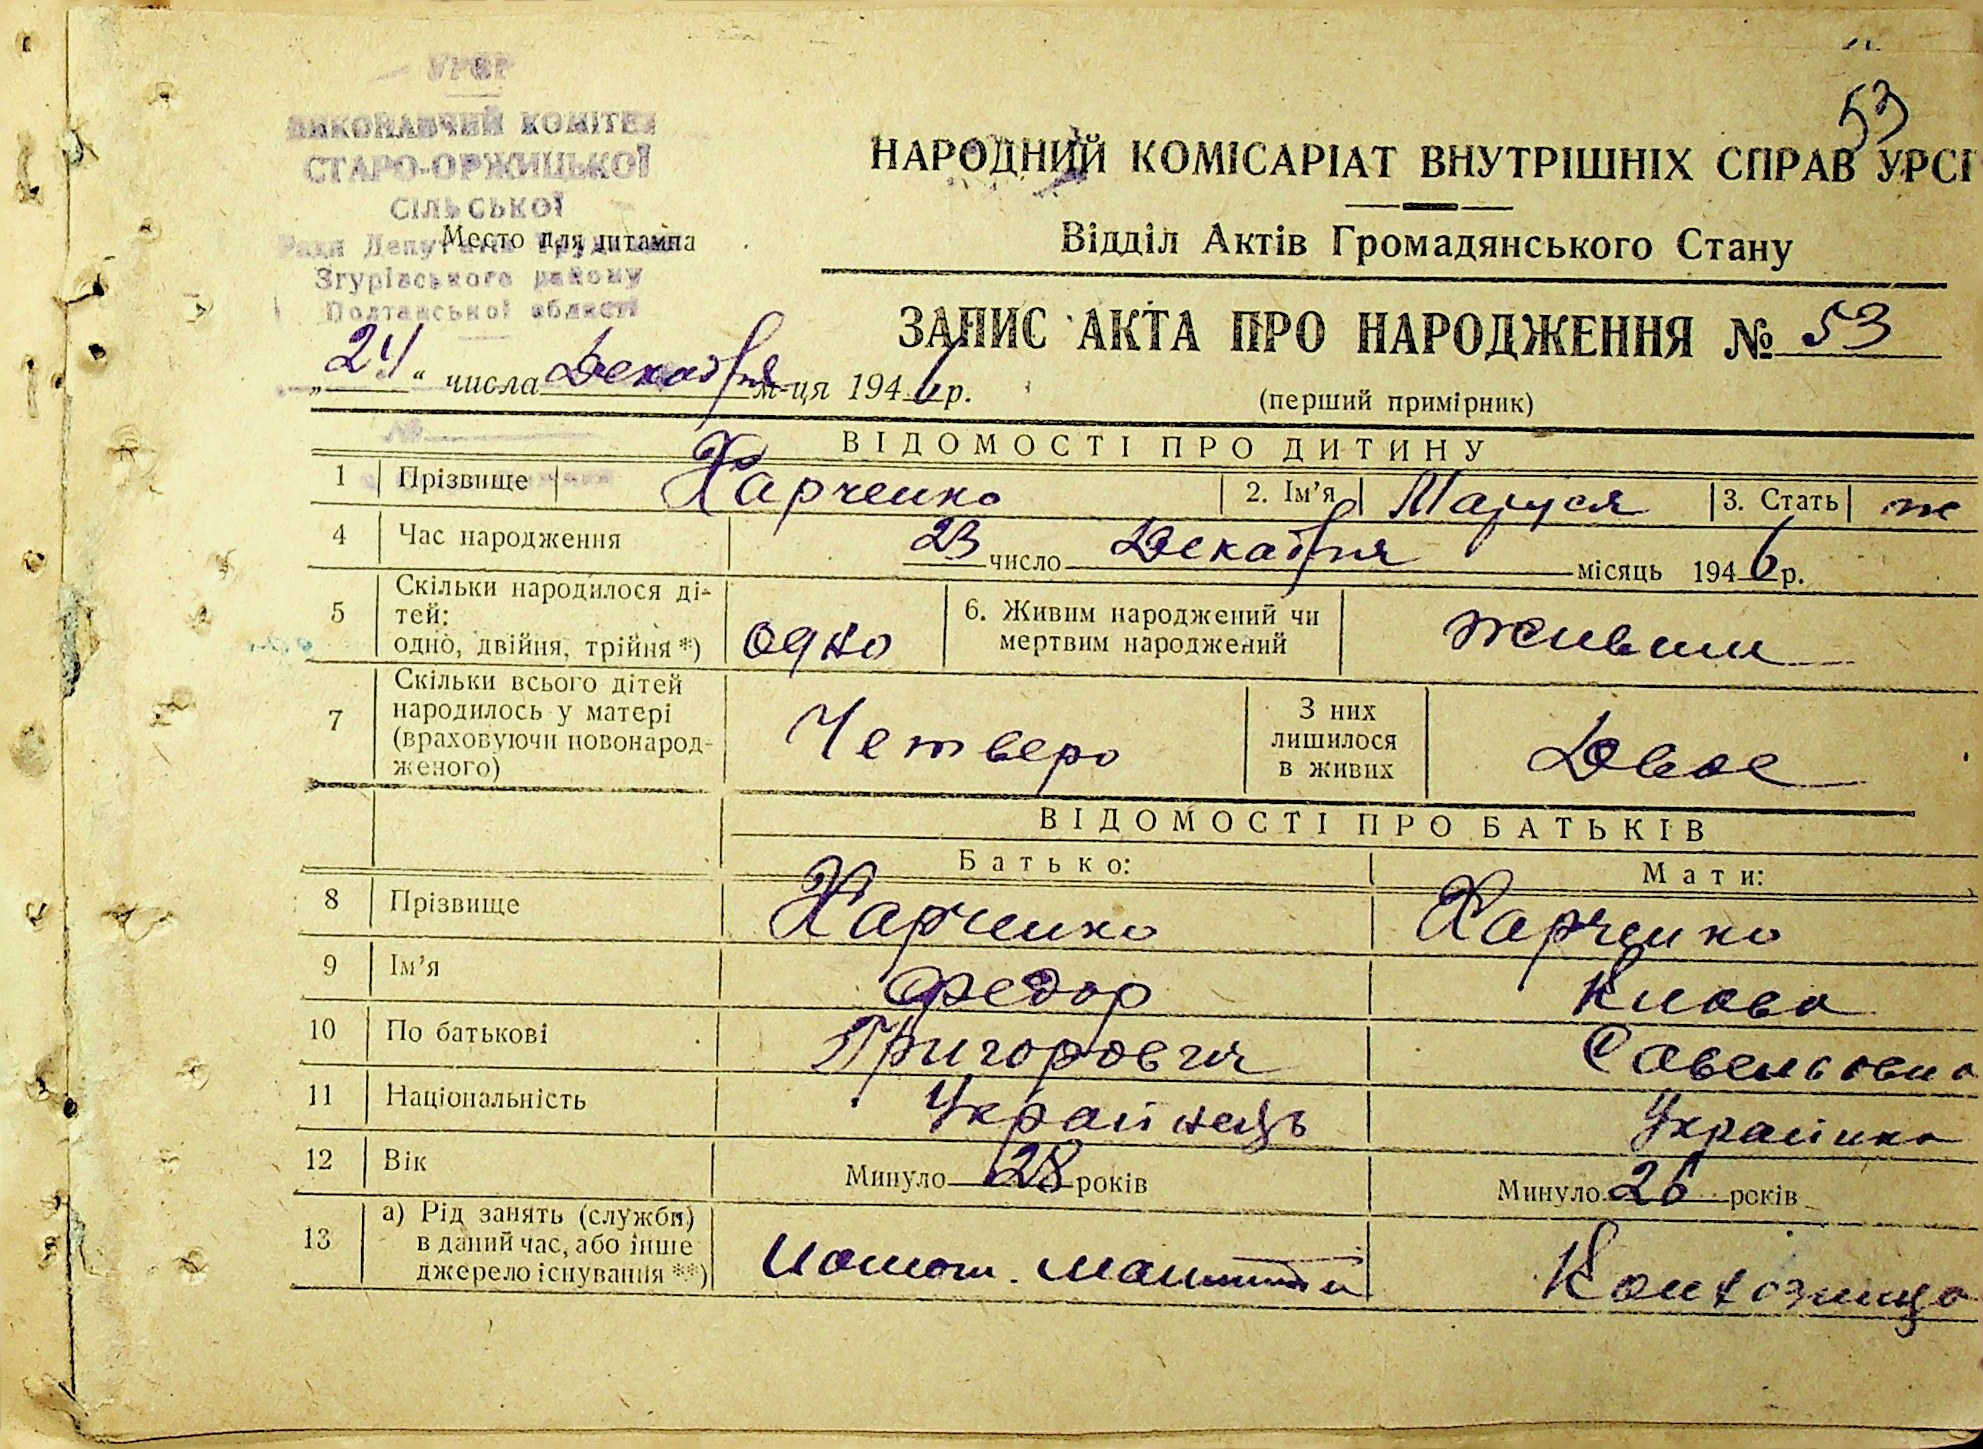 53
УРСР
ВИКОНАВЧИЙ КОМІТЕТ
СТАРО-ОРЖИЦЬКОЇ
СІЛЬСЬКОЇ
Ради Депутатів Трудящих
Згурівського району
Полтавської області
Место для штампа
НАРОДНИЙ КОМІСАРІАТ ВНУТРІШНІХ СПРАВ УРСР
Відділ Актів Громадянського Стану
ЗАПИС АКТА ПРО НАРОДЖЕННЯ № 53
„24“ числа Декабря м-ця 1946 р.
(перший примірник)
ВІДОМОСТІ ПРО ДИТИНУ
1 Прізвище Харченко 2. Ім’я Маруся 3. Стать ж
4 Час народження 23 число Декабря місяць 1946 р.
5 Скільки народилося ді-
тей:
одно, двійня, трійня*) одно 6. Живим народжений чи
мертвим народжений живим
7 Скільки всього дітей
народилось у матері
(враховуючи новонарод-
женого) Четверо З них
лишилося
в живих Двое
ВІДОМОСТІ ПРО БАТЬКІВ
Батько: Мати:
8 Прізвище Харченко Харченко
9 Ім’я Федор
10 По батькові Григорович Савельовна
11 Національність Українець Українка
12 Вік Минуло 28 років Минуло 26 років
13 а) Рід занять (служби)
в даний час, або інше
джерело існування **) Колхозница